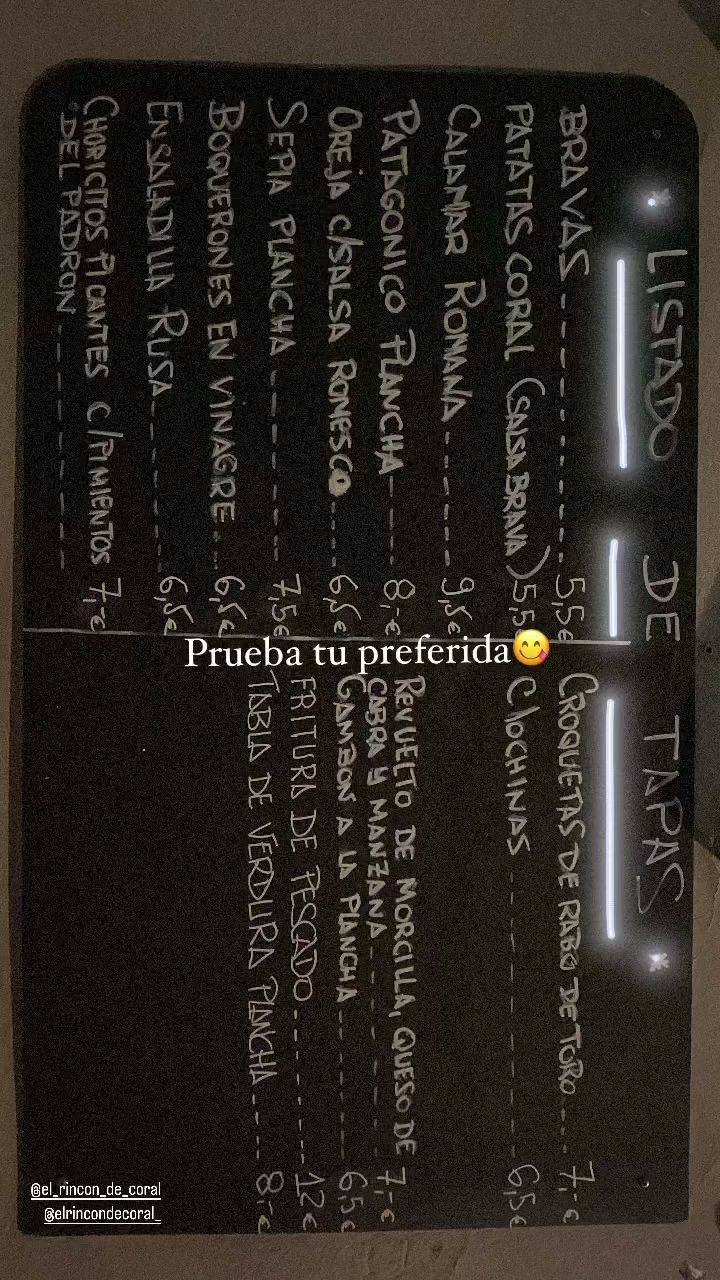 * LISTADO DE TAPAS *
BRAVAS ------------ 5,5€
PATATAS CORAL (SALSA BRAVA) 5,5€
CALAMAR ROMANA -------- 9,5€
PATAGONICO PLANCHA ----- 8,-€
OREJA C/SALSA ROMESCO ---- 6,5€
SEPIA PLANCHA ---------- 7,5€
BOQUERONES EN VINAGRE --- 6,5€
ENSALADILLA RUSA --------- 6,5€
CHORICITOS PICANTES C/PIMIENTOS 7,-€
DEL PADRON -----------
CROQUETAS DE RABO DE TORO ---- 7,-€
CLOCHINAS ------------ 6,5€
REVUELTO DE MORCILLA, QUESO DE
CABRA Y MANZANA --------- 7,-€
GAMBON A LA PLANCHA -------- 6,5€
FRITURA DE PESCADO --------- 12€
TABLA DE VERDURA PLANCHA ---- 8,-€
Prueba tu preferida😋
@el_rincon_de_coral
@elrincondecoral_